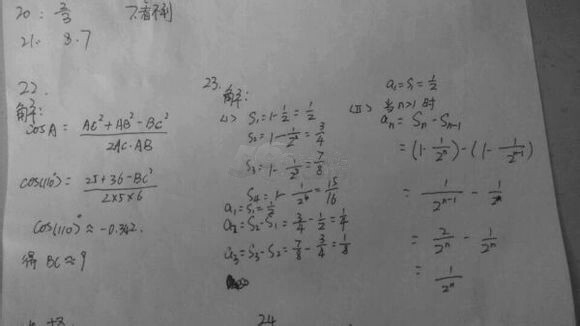 20: 2/3 7.看不到
21. 8.7
22.
解:
cosA = (AC²+AB²-BC²)/(2AC·AB)
cos(110°) = (25+36-BC²)/(2×5×6)
cos(110°) ≈ -0.342.
得 BC ≈ 9
23.
解:
(1) S₁=1-1/2=1/2
S₂=1-1/2²=3/4
S₃=1-1/2³=7/8
S₄=1-1/2⁴=15/16
a₁=S₁=1/2
a₂=S₂-S₁=3/4-1/2=1/4
a₃=S₃-S₂=7/8-3/4=1/8
a₁=S₁=1/2
(II) 当n>1时
aₙ=Sₙ-Sₙ₋₁
=(1-1/2ⁿ)-(1-1/2ⁿ⁻¹)
=1/2ⁿ⁻¹-1/2ⁿ
=2/2ⁿ-1/2ⁿ
=1/2ⁿ
24